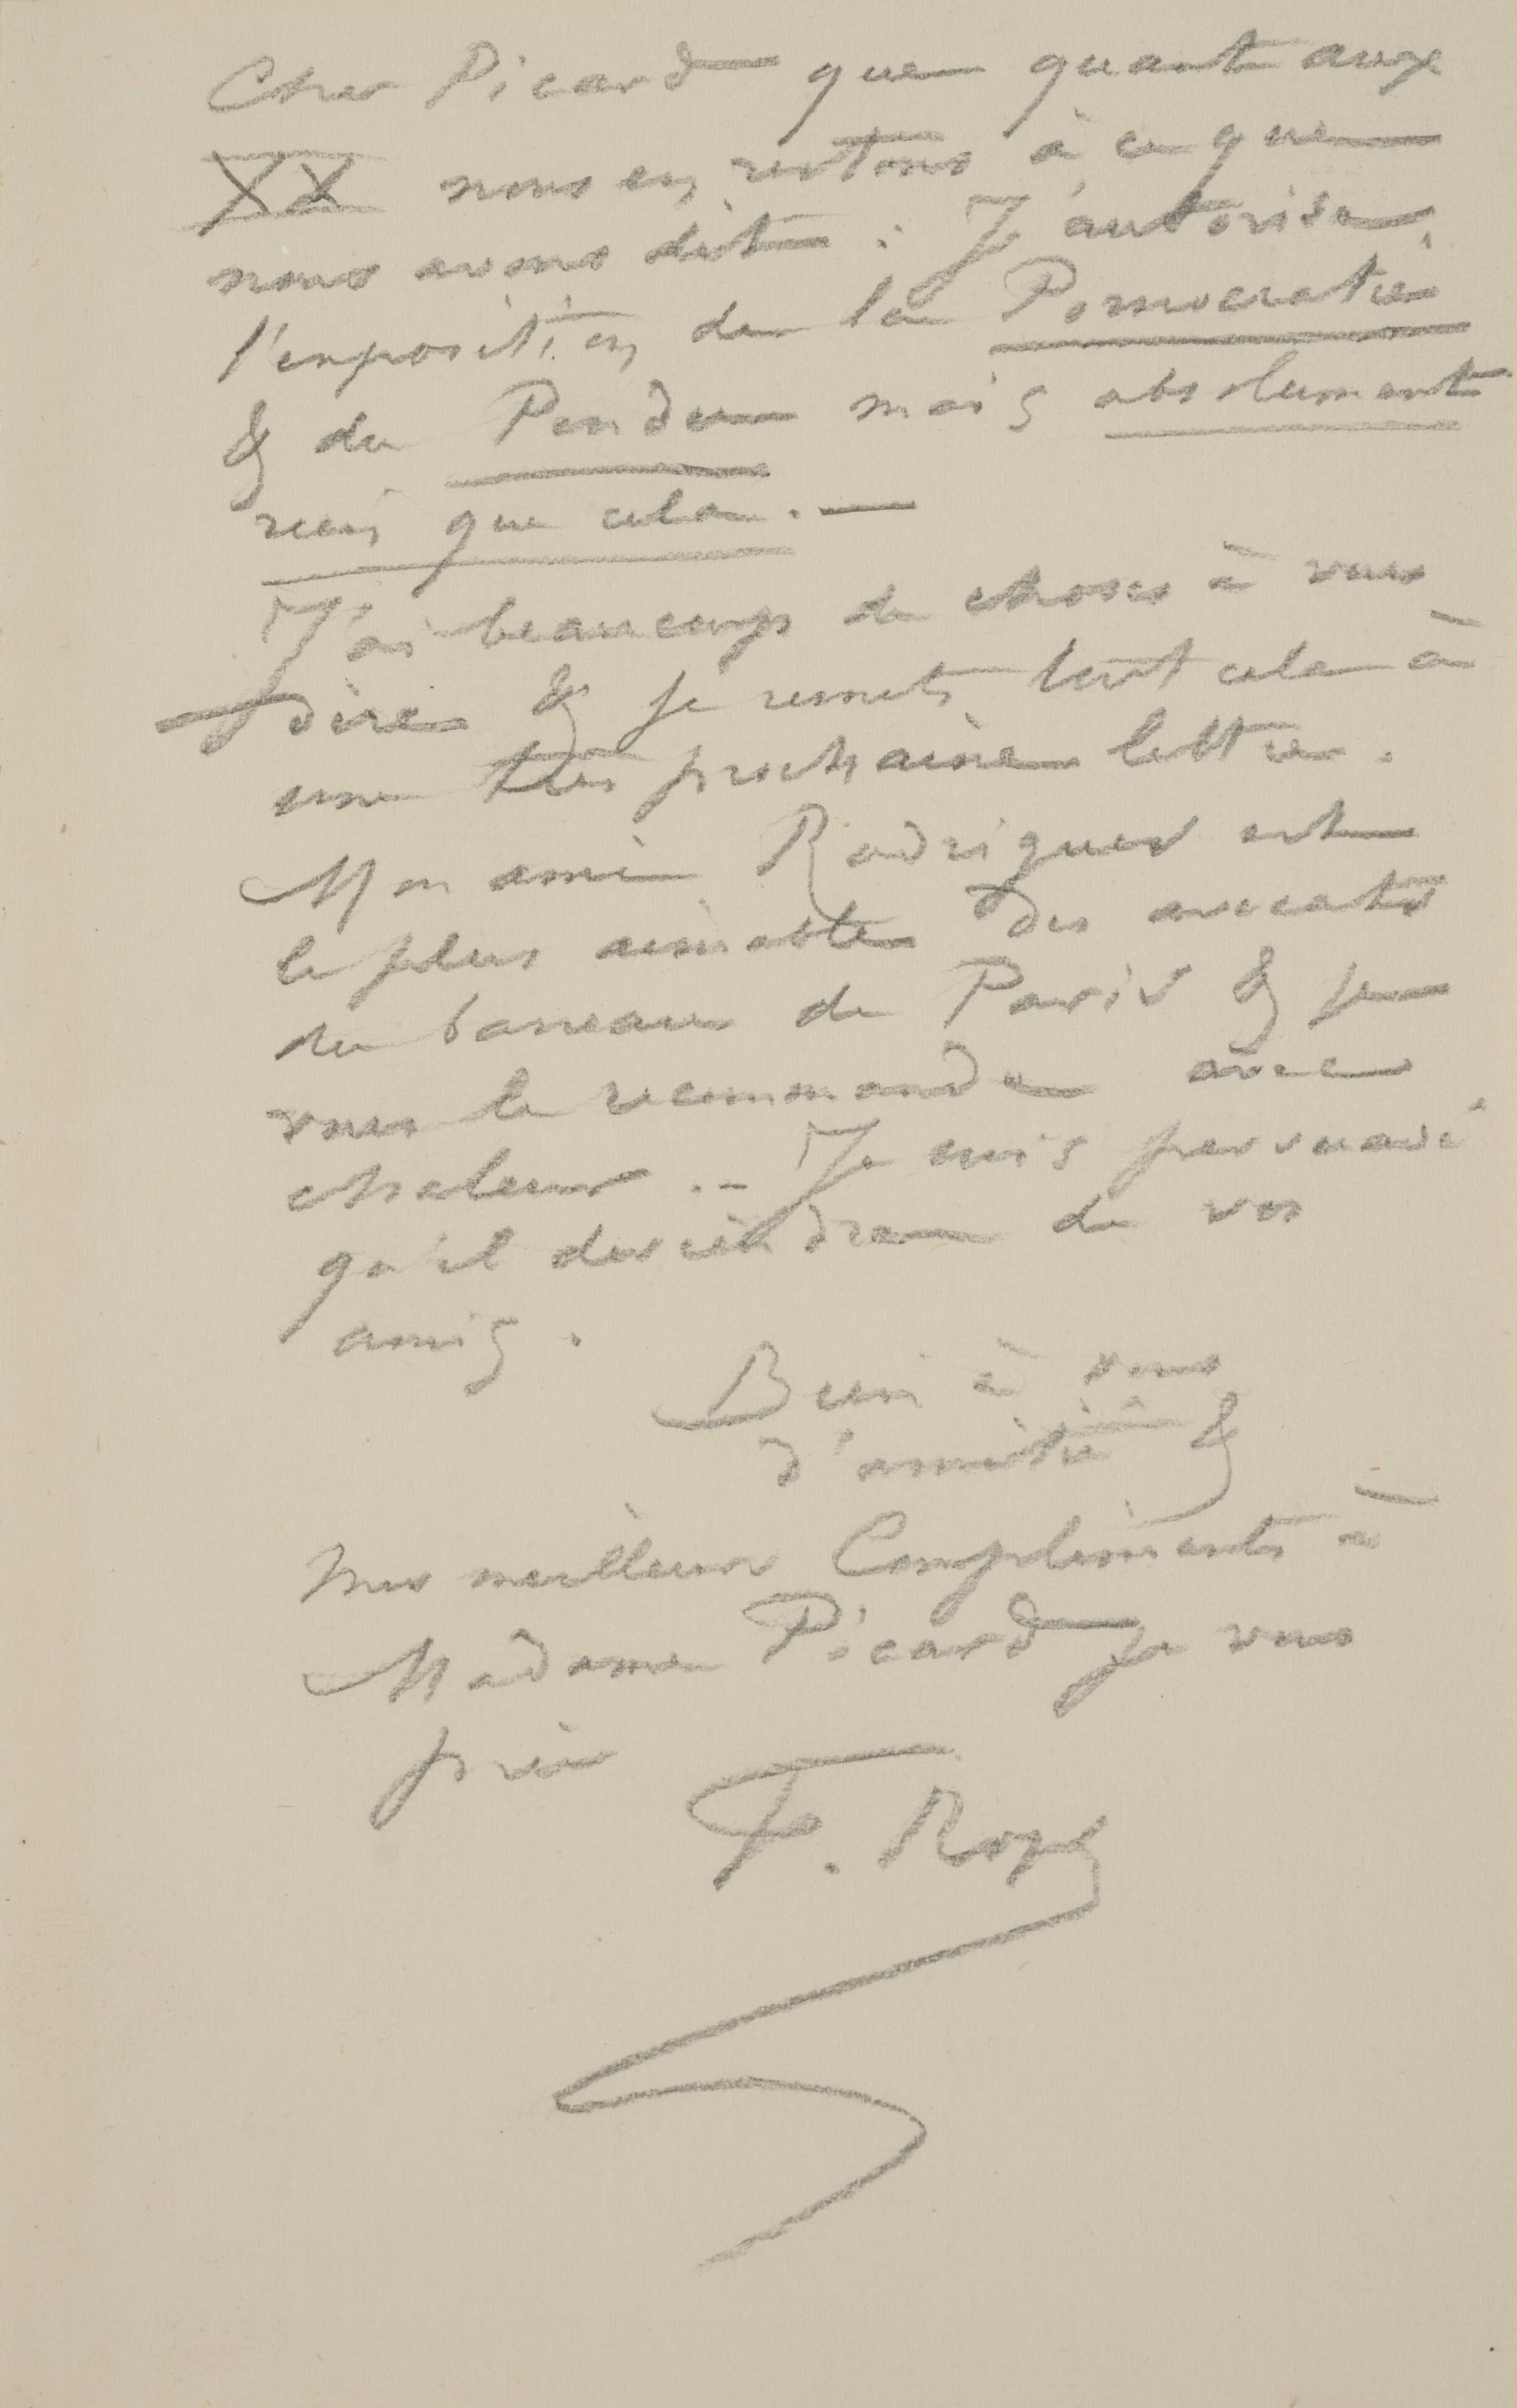 Cher Picard que quant aux
XX nous en restons à ce que
nous avons dit : J'autorise
l'exposition de la Pornocratie
& du Pendu mais absolument
rien que cela. —
J'ai beaucoup de choses à vous
dire & je remets tout cela à
une très prochaine lettre.
Mon ami Rodrigues est
le plus aimable des avocats
du barreau de Paris & je
vous le recommande avec
chaleur .. Je suis persuadé
qu'il deviendra de vos
amis.
Bien à vous
d'amitié &
mes meilleurs Compliments à
Madame Picard je vous
prie
F. Rops